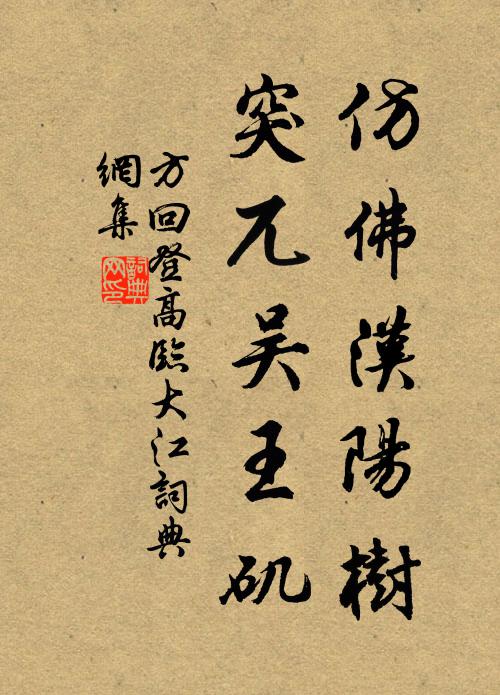 仿佛漢陽樹
突兀吳王矶
方回登高臨大江詞典
網集
詞典網印